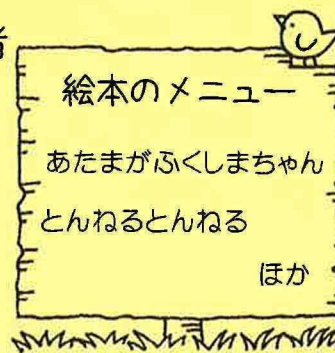 者
絵本のメニュー
あたまがふくしまちゃん
とんねるとんねる
ほか